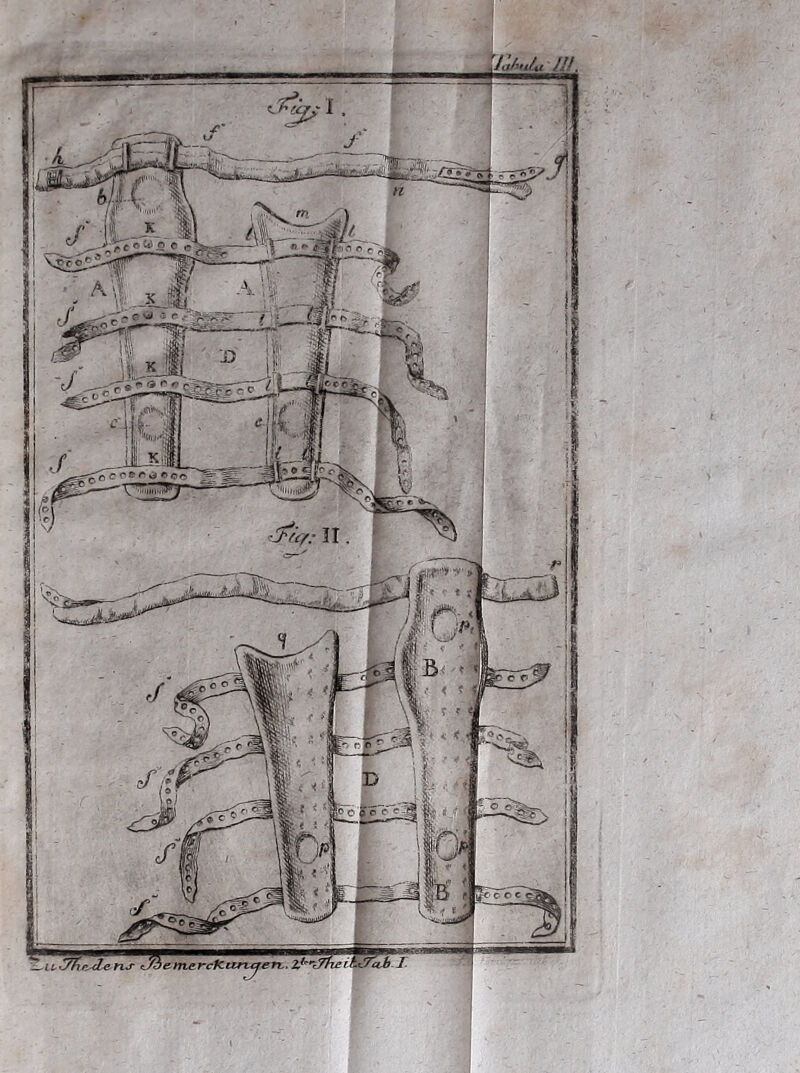 Tabula III.
Fig: I.
h f f g
n
b
K m
f l l
A K A
f l l
D
K
f l
e e
K
f l l
Fig: II.
r
p
q
B
f
f D
f
p p
B
f
Zu Thedens Bemerckungen. 2ter Theil. Tab. I.